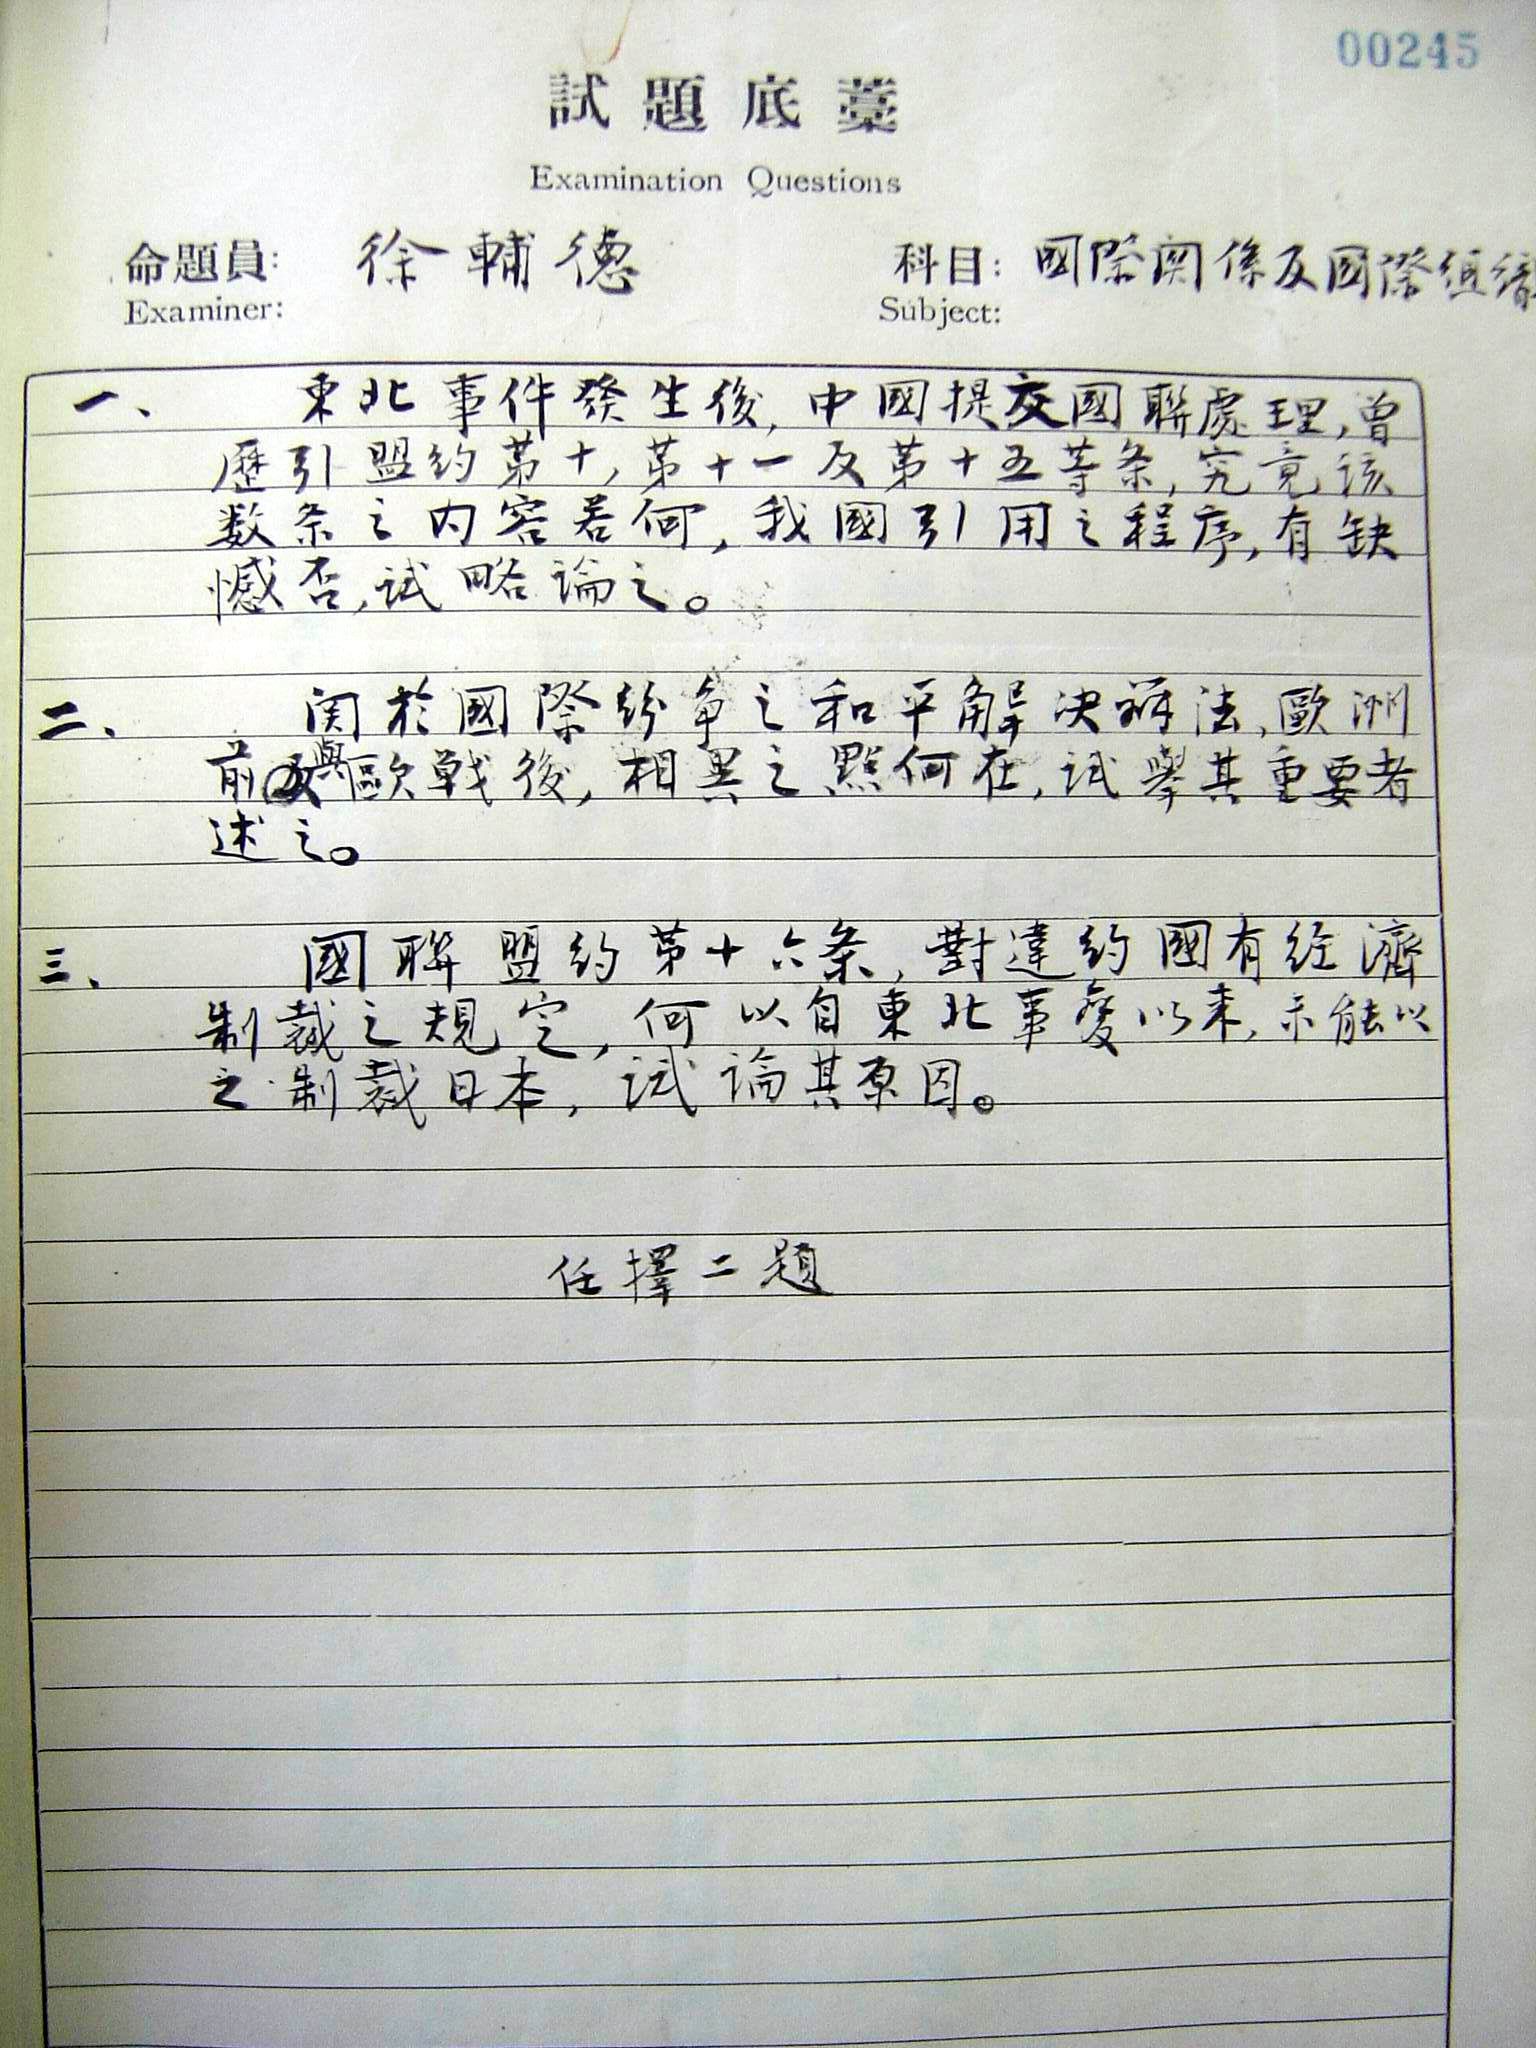 00245
試題底藁
Examination Questions
命題員: 徐輔德 科目: 國際関係及國際組織
Examiner: Subject:
一、 東北事件發生後,中國提交國聯處理,曾
歷引盟約第十,第十一及第十五等条,究竟該
数条之内容若何,我國引用之程序,有缺
憾否,试略論之。
二、 関於國際紛争之和平解决办法,歐洲
前與歐戰後,相異之點何在,试舉其重要者
述之。
三、 國聯盟約第十六条,對違約國有经濟
制裁之規定,何以自東北事變以来,未能以
之制裁日本,試論其原因。
任擇二題